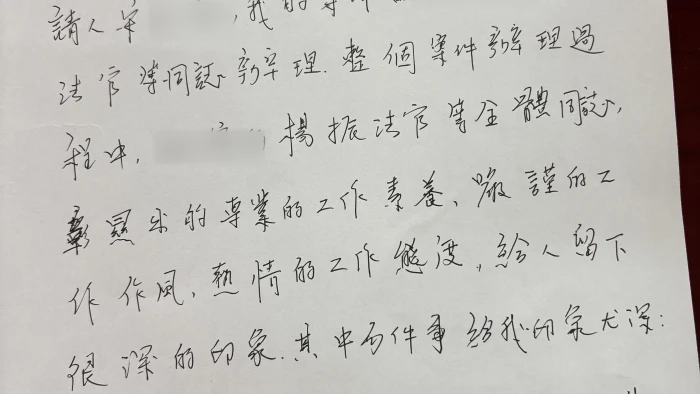 請人宋 ,我的事件
法官等同誌辦理.整個案件辦理過
程中, 楊振法官等全體同誌,
彰顯出的專業的工作素養、嚴謹的工
作作風、熱情的工作態度,給人留下
很深的印象.其中兩件事給我印象尤深: